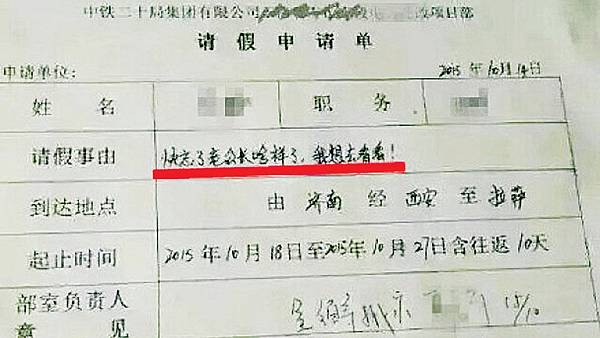 中铁二十局集团有限公司 项目部
请假申请单
申请单位: 2015年10月14日
姓名 职务
请假事由 快忘了老公长啥样了,我想去看看!
到达地点 由济南经西安至拉萨
起止时间 2015年10月18日至2015年10月27日含往返10天
部室负责人 15/10
意见